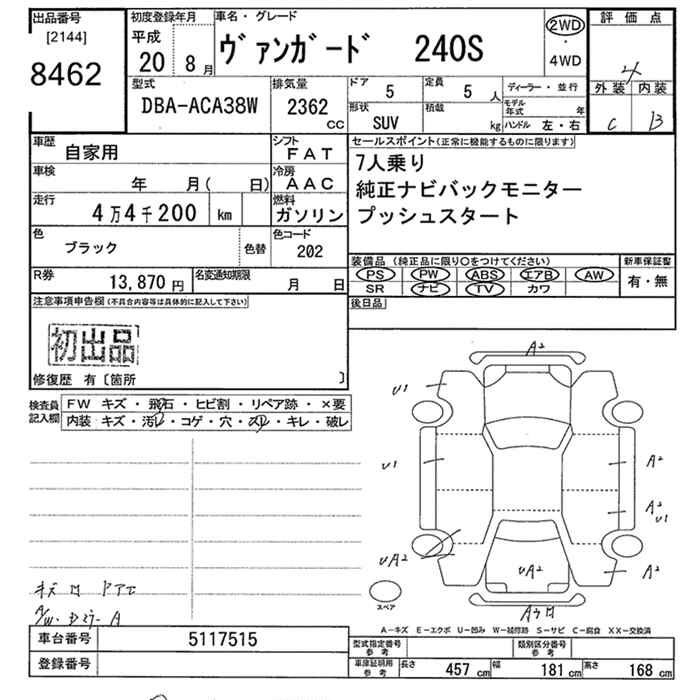 出品番号
[2144]
8462
初度登録年月
平成
20 8月
車名・グレード
ヴァンガード 240S
2WD
・
4WD
評価点
4
外装 内装
C B
型式
DBA-ACA38W
排気量
2362
CC
ドア
5
定員
5人
形状
SUV
積載
kg
ディーラー・並行
モデル年式 年
ハンドル 左・右
車歴
自家用
シフト
FAT
車検
年 月( 日)
冷房
AAC
走行
4万4千200 km
燃料
ガソリン
色
ブラック
色替
色コード
202
セールスポイント(正常に機能するものに限ります)
7人乗り
純正ナビバックモニター
プッシュスタート
R券
13,870円
名変通知期限
月 日
装備品 (純正品に限り〇をつけてください)
PS PW ABS エアB AW
SR ナビ TV カワ
新車保証書
有・無
注意事項申告欄(不具合内容等は具体的に記入して下さい)
後日品
初出品
修復歴 有〔箇所 〕
検査員
記入欄
FW キズ・飛石・ヒビ割・リペア跡・×要
内装 キズ・汚レ・コゲ・穴・スレ・キレ・破レ
A2
U1
U1
A2
A2
U1
UA2
UA2
A2
スペア
A-キズ E-エクボ U-凹み W-補修跡 S-サビ C-腐食 XX-交換済
車台番号
5117515
登録番号
型式指定番号
参考
類別区分番号
参考
車庫証明用
参考
長さ 457cm 幅 181cm 高さ 168cm